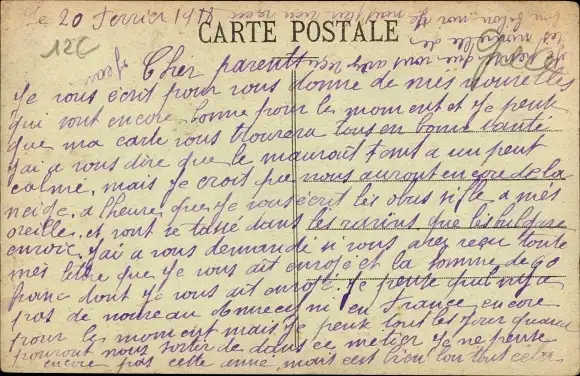 Le 20 Fevrier 191
CARTE POSTALE
12€
Cher parents
Je vous écrit pour vous donne de mes nouvelles
qui sont encore bonne pour les moment et Je peute
que ma carte vous trouvera tous en bonne santé
J'ai a vous dire que le mauvait tans a un peut
calme. mais Je croit que nous auront encore de la
neige. a l'heure que Je vous écrit les obus sifle a més
oreille. et vont se tassé dans les ravins que les
envoie. J'ai a vous demande si vous avez reçu toute
més litre que Je vous ait envoyé et la somme de 60
franc dont Je vous ait envoyé. Je peute qu'il n'y a
pas de nouveau a ni en France. encore
pour les moment mais Je peute tout les Jour quand
pouront nous sortir de dans ce métier Je ne peute
encore pas cette anné, mais c'est bien lon tout cela.